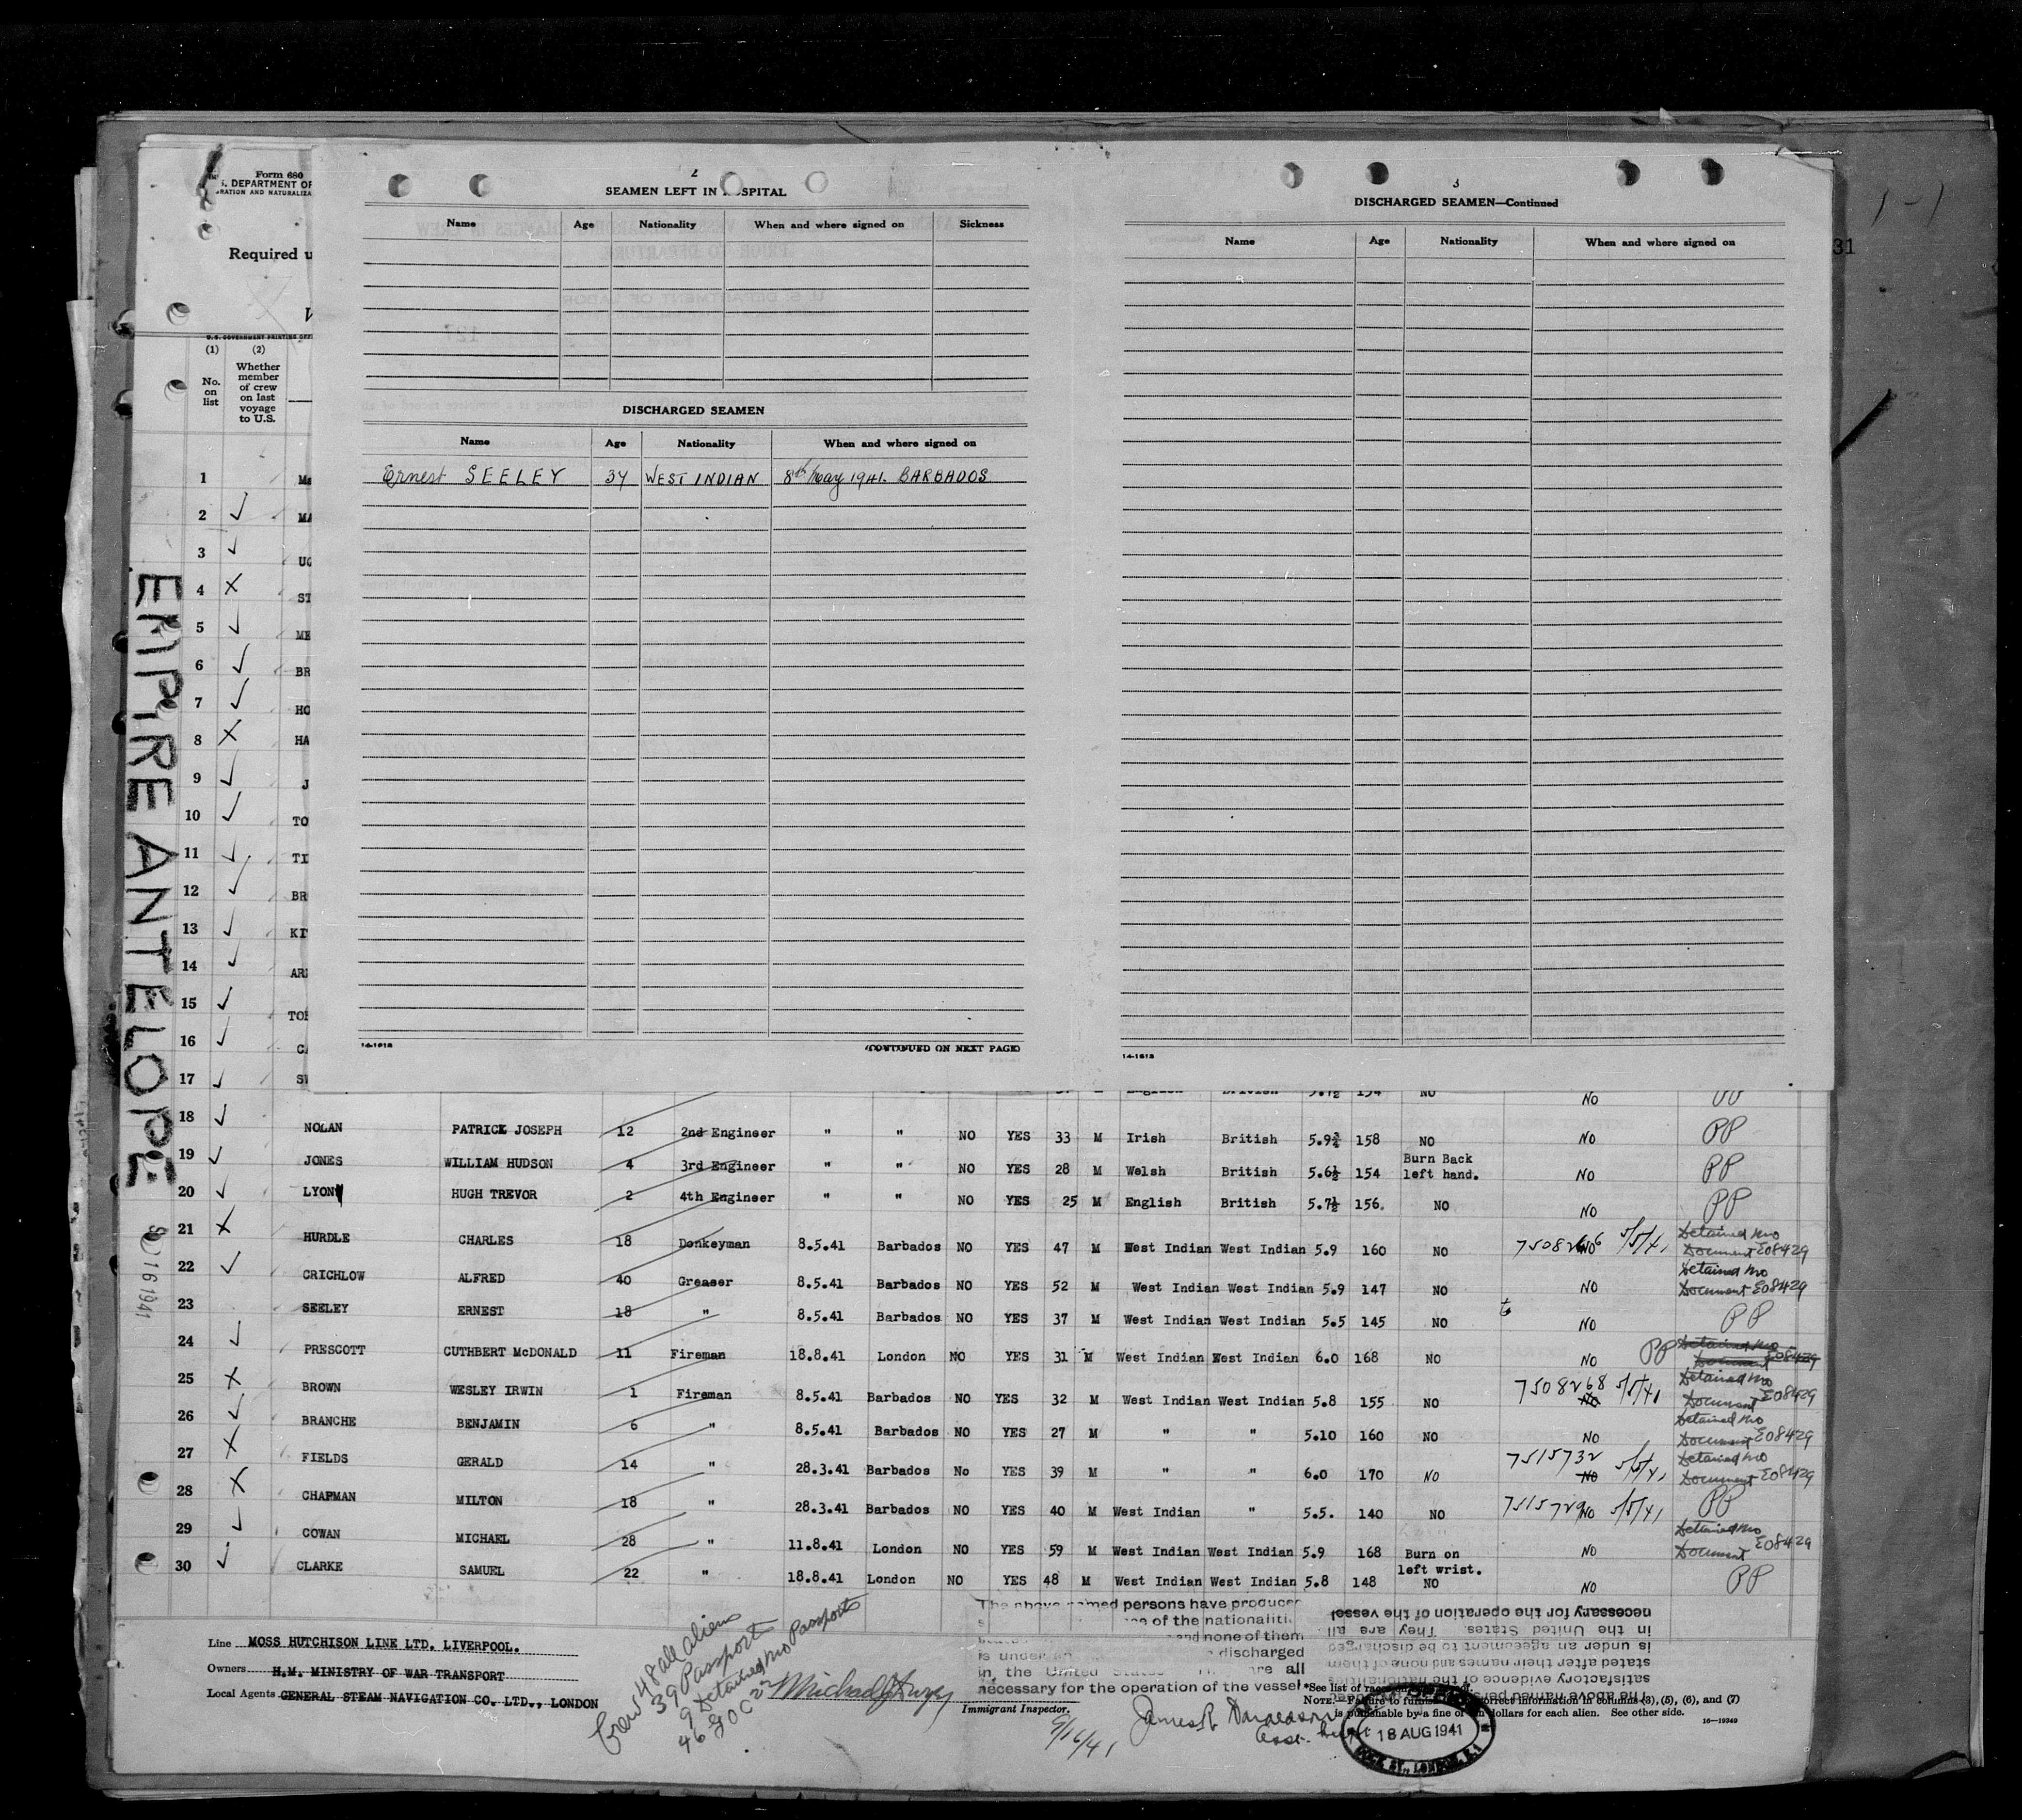 Form 680
S. DEPARTMENT OF
RATION AND NATURALIZA
Required u
U.S. GOVERNMENT PRINTING OFF
(1) (2)
No. on list
Whether member of crew on last voyage to U.S.
EMPIRE ANTELOPE
2
SEAMEN LEFT IN HOSPITAL
Name Age Nationality When and where signed on Sickness
DISCHARGED SEAMEN
Name Age Nationality When and where signed on
Ernest SEELEY 34 WEST INDIAN 8th May 1941. BARBADOS
14-1618 (CONTINUED ON NEXT PAGE)
3
DISCHARGED SEAMEN—Continued
Name Age Nationality When and where signed on
14-1618
31
1
2 MA
3 UG
4 ST
5 ME
6 BR
7 HO
8 HA
9 J
10 TO
11 TI
12 BR
13 KI
14 AR
15 TO
16
17
18 NOLAN PATRICK JOSEPH 12 2nd Engineer " " NO YES 33 M Irish British 5.9¾ 158 NO NO PP
19 JONES WILLIAM HUDSON 4 3rd Engineer " " NO YES 28 M Welsh British 5.6½ 154 Burn Back left hand. NO PP
20 LYON HUGH TREVOR 2 4th Engineer " " NO YES 25 M English British 5.7½ 156. NO NO PP
21 HURDLE CHARLES 18 Donkeyman 8.5.41 Barbados NO YES 47 M West Indian West Indian 5.9 160 NO 5/5/41 Detained no Document E08429
22 CRICHLOW ALFRED 40 Greaser 8.5.41 Barbados NO YES 52 M West Indian West Indian 5.9 147 NO NO Detained no Document E08429
23 SEELEY ERNEST 18 " 8.5.41 Barbados NO YES 37 M West Indian West Indian 5.5 145 NO NO PP
24 PRESCOTT CUTHBERT McDONALD 11 Fireman 18.8.41 London NO YES 31 M West Indian West Indian 6.0 168 NO NO PP Detained no Document E08429
25 BROWN WESLEY IRWIN 1 Fireman 8.5.41 Barbados NO YES 32 M West Indian West Indian 5.8 155 NO 7508268 NO 5/5/41 Detained no Document E08429
26 BRANCHE BENJAMIN 6 " 8.5.41 Barbados NO YES 27 M " " 5.10 160 NO NO Detained no Document E08429
27 FIELDS GERALD 14 " 28.3.41 Barbados No YES 39 M " " 6.0 170 NO 7515732 NO 5/5/41 Detained no Document E08429
28 CHAPMAN MILTON 18 " 28.3.41 Barbados NO YES 40 M West Indian " 5.5. 140 NO 7515729 NO 5/5/41 PP
29 COWAN MICHAEL 28 " 11.8.41 London NO YES 59 M West Indian West Indian 5.9 168 Burn on left wrist. NO Detained no Document E08429
30 CLARKE SAMUEL 22 " 18.8.41 London NO YES 48 M West Indian West Indian 5.8 148 NO NO PP
Line MOSS HUTCHISON LINE LTD. LIVERPOOL.
Owners H.M. MINISTRY OF WAR TRANSPORT
Local Agents GENERAL STEAM NAVIGATION CO. LTD., LONDON
Crew 48 all aliens
39 Passports
9 Detained no Passports
Immigrant Inspector.
9/16/41
James R. Donaldson
The above named persons have produce
of the nationaliti
and none of them
is under an discharged
in the United States are all
necessary for the operation of the vessel
The above named
satisfactory evidence of the nationalities
stated after their names and none of them
is under an agreement to be discharged
in the United States. They are all
necessary for the operation of the vessel
*See list of races
NOTE.—Failure to furnish correct information in columns (3), (5), (6), and (7)
is punishable by a fine of ten dollars for each alien. See other side.
16—19349
18 AUG 1941